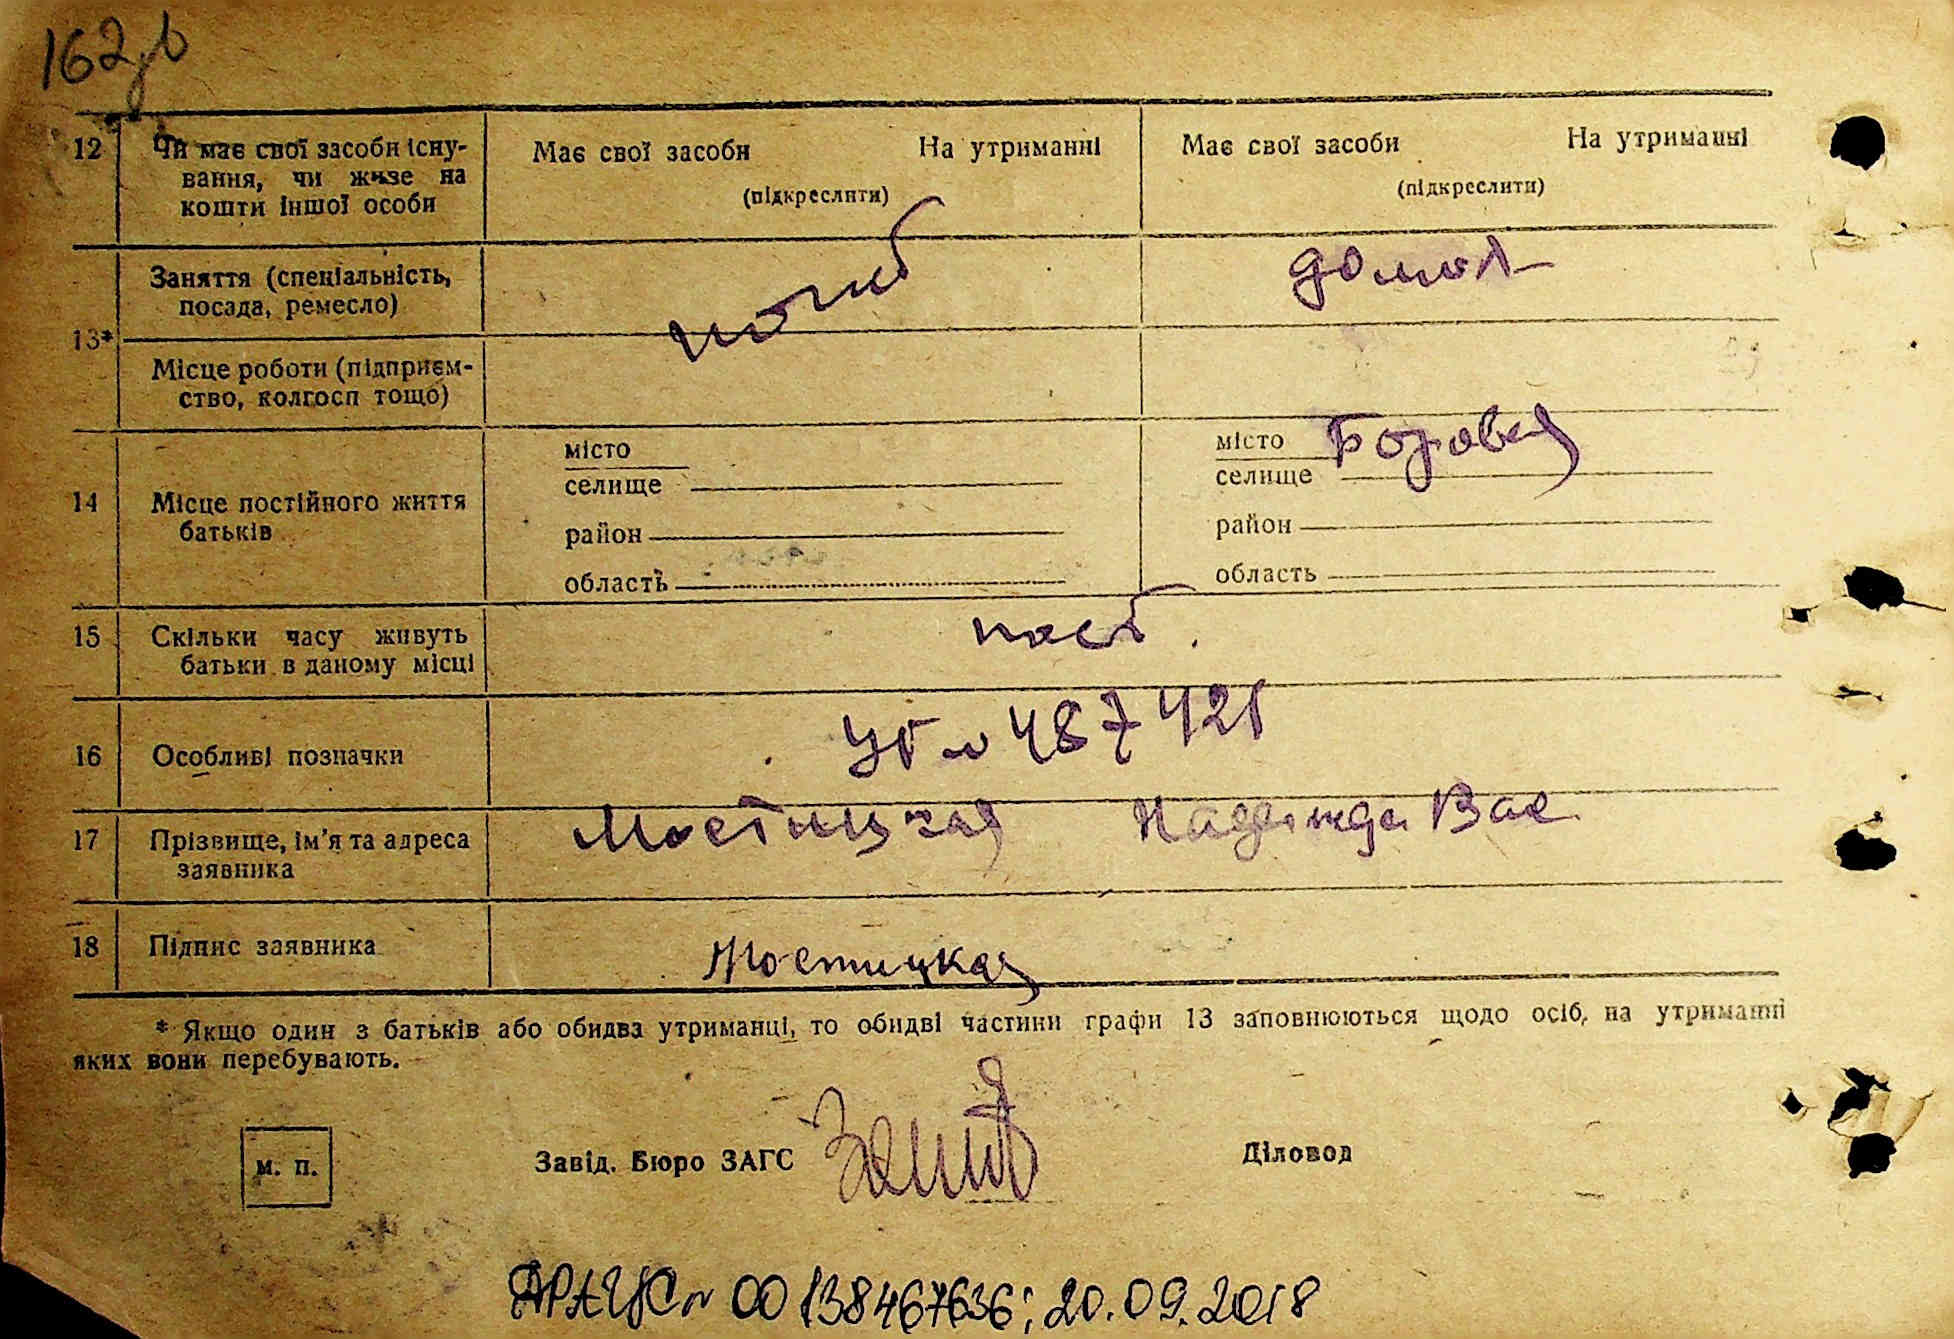 162
12 Чи має свої засоби існу- Має свої засоби На утриманні Має свої засоби На утриманні
вання, чи живе на (підкреслити) (підкреслити)
кошти іншої особи
Заняття (спеціальність, погиб домох
посада, ремесло)
13*
Місце роботи (підприєм-
ство, колгосп тощо)
місто місто Боровая
селище селище
14 Місце постійного життя
батьків
район район
область область
15 Скільки часу живуть пост.
батьки в даному місці
16 Особливі позначки 487421
17 Прізвище, ім'я та адреса Мостицкая Надежда Вас
заявника
18 Підпис заявника Мостицкая
* Якщо один з батьків або обидва утриманці, то обидві частини графи 13 заповнюються щодо осіб, на утриманні
яких вони перебувають.
м. п. Завід. Бюро ЗАГС Діловод
ДРАЦС 00138467636; 20.09.2018